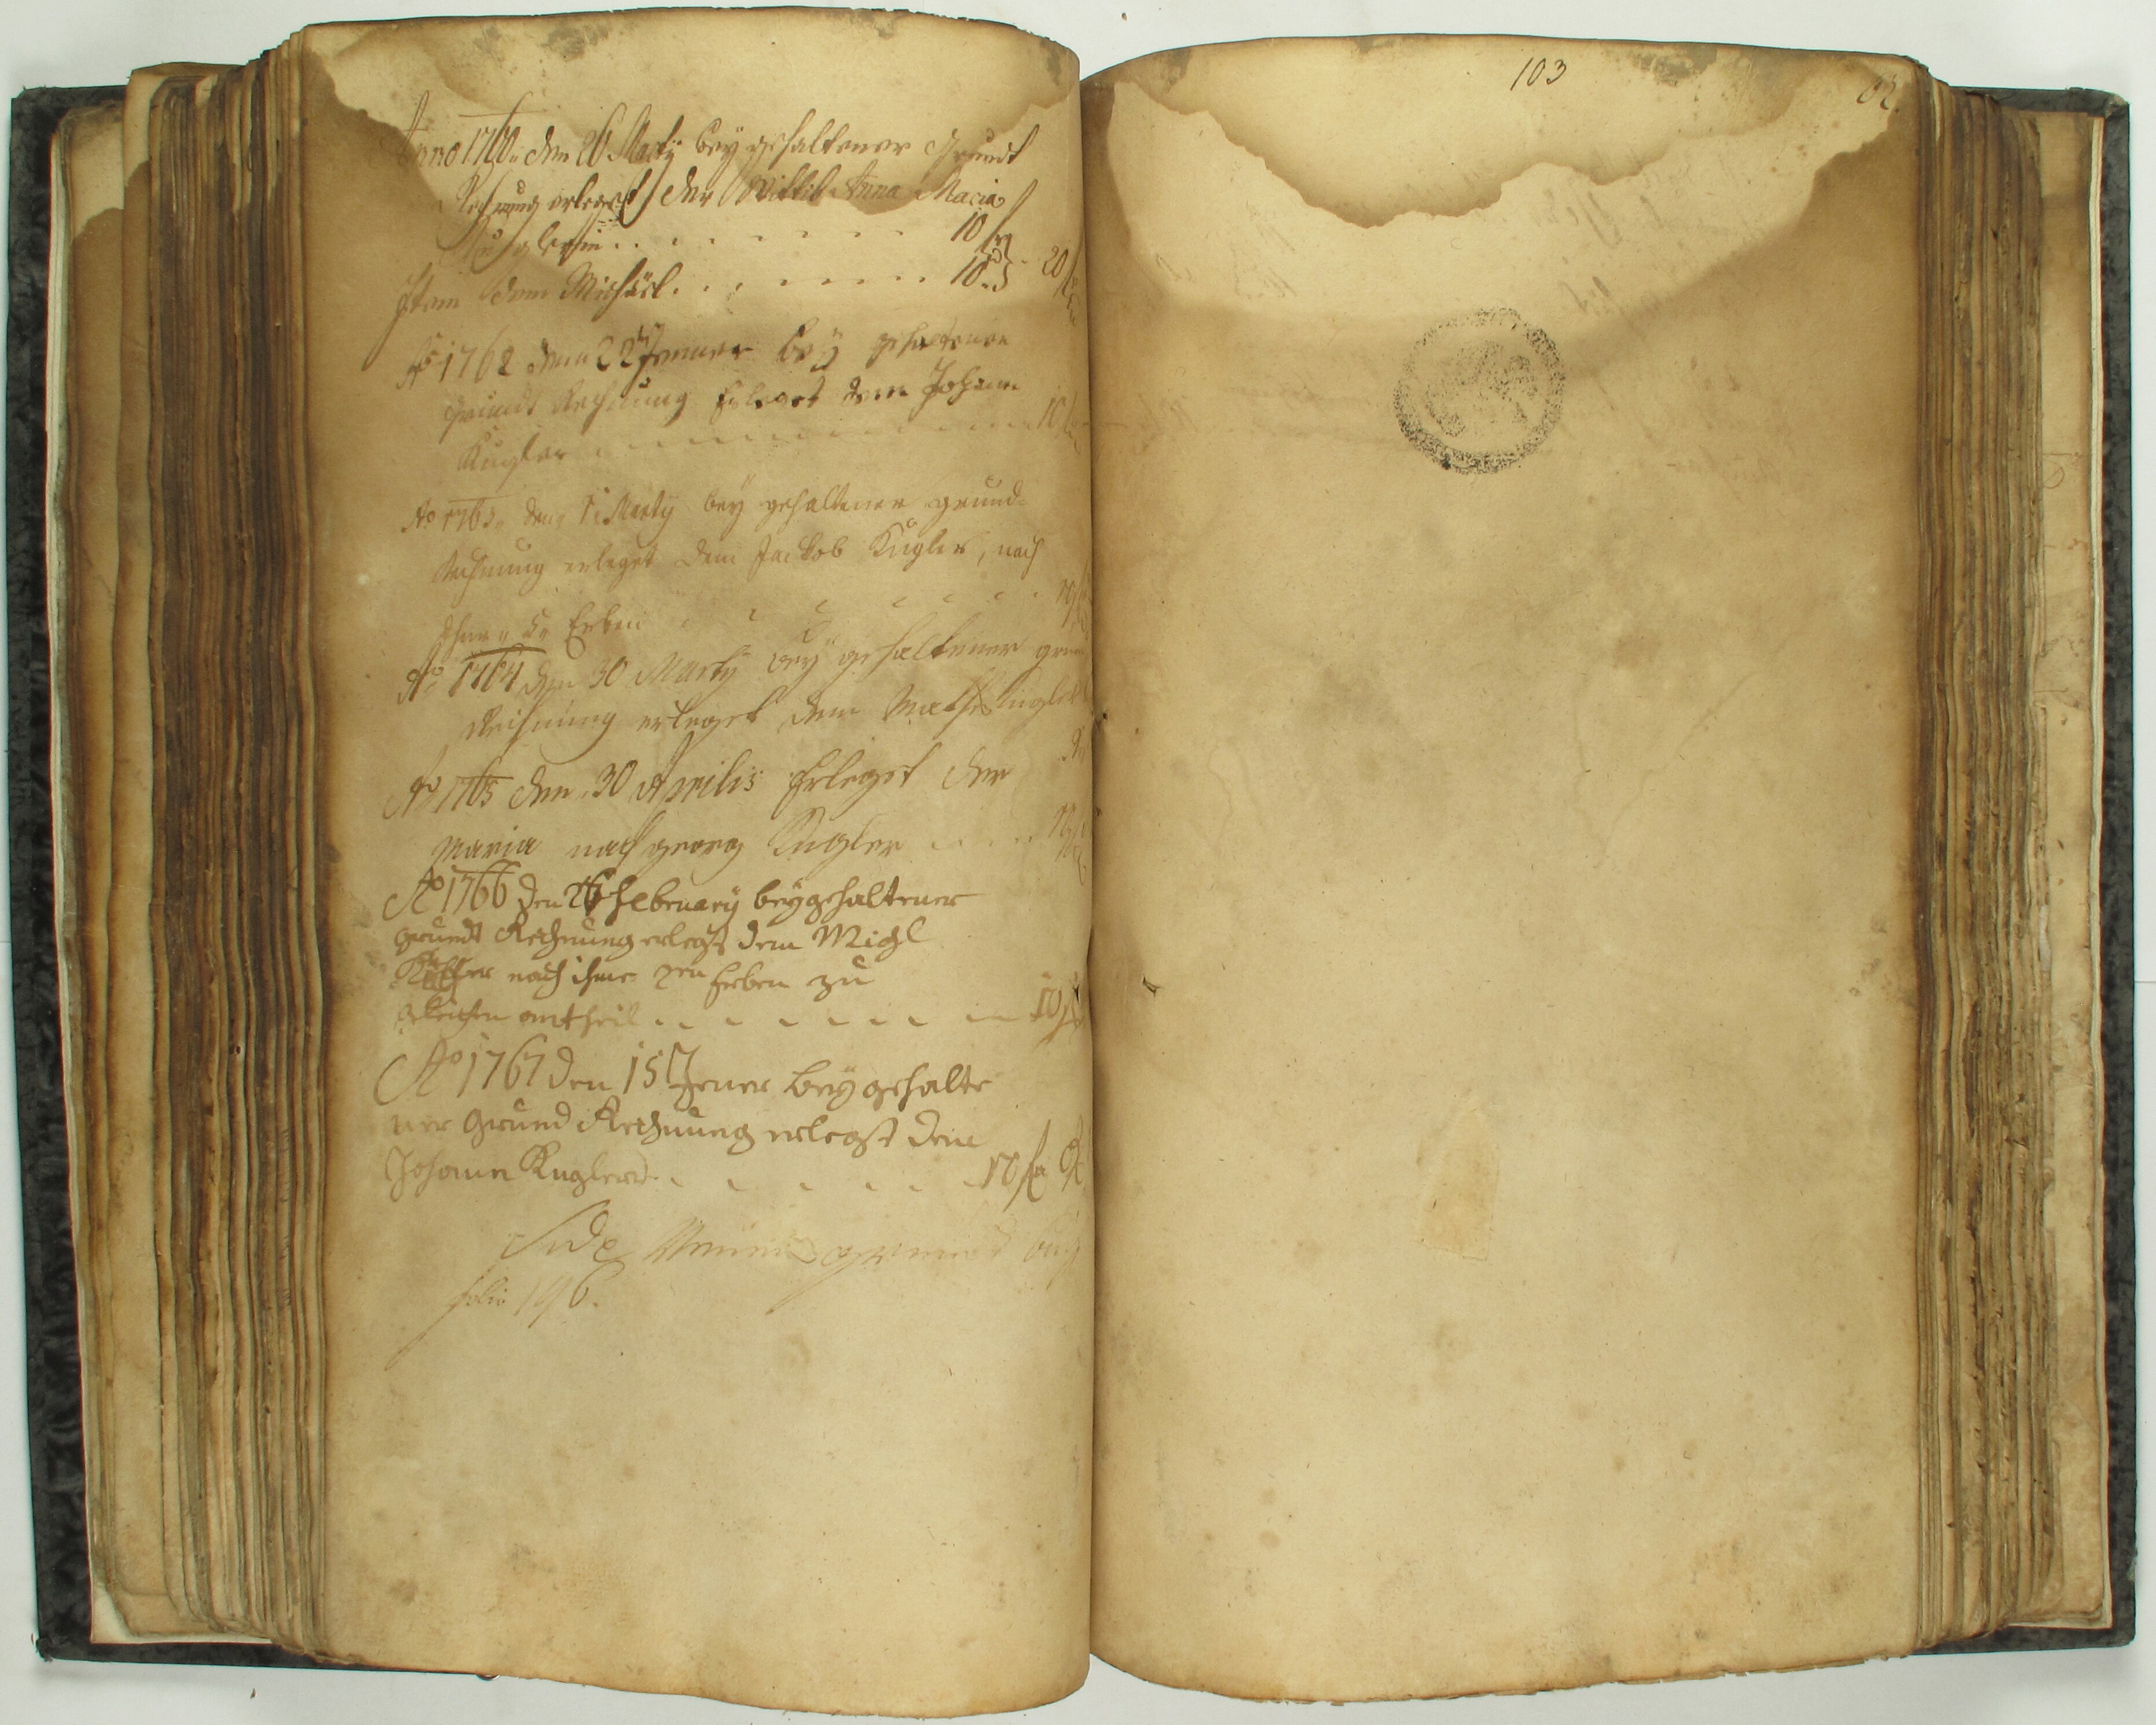 Anno 1760 den 26 Marty bey gehaltener Grundt
Rechnung erlegt der Wittib Anna Maria
Kuglerin 10 fl
Item dem Michäel 10 20 fl
Ao 1762 den 22 Jenner bey gehaltener
Grundt Rechnung Erleget dem Johann
Kugler 10 fl
Ao 1763 den Marty bey gehaltener grund
Rechnung erleget dem Jackob Kugler, nach
Ihme Erben
Ao 1764 den 30 Marty bey gehaltener
Rechnung erleget dem Kugler
Ao 1765 den 30 Aprilis Erleget der
Maria nach georg Kugler
Ao 1766 den 26 February bey gehaltener
grundt Rechnung erlegt dem Michl
nach ihme Erben zu
gleichen antheil 10 fl
Ao 1767 den 15 Jener bey gehalte
ner Grund Rechnung erlegt dem
Johann Kugler 10 fl
Vide Neuen grund buch
folio 196.
103